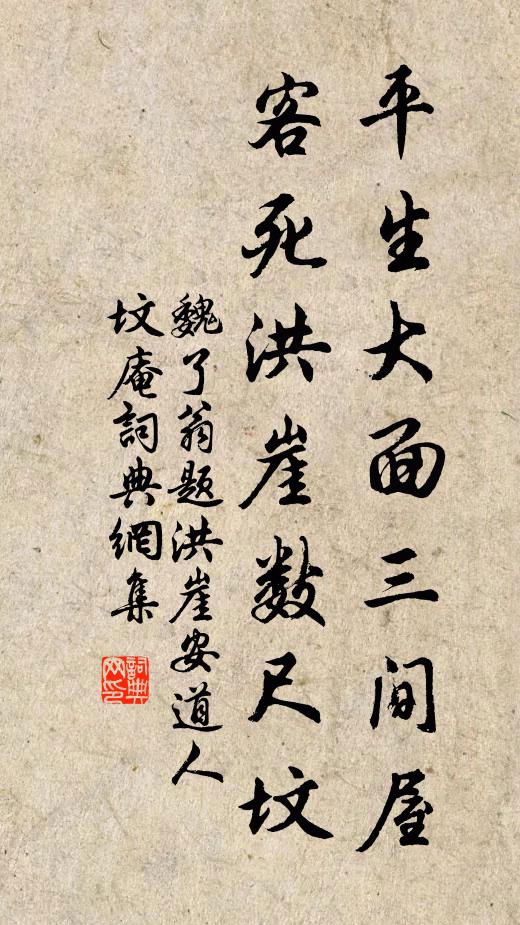 平生大面三间屋
客死洪崖数尺坟
魏了翁题洪崖安道人
坟庵詞典網集
詞典網印